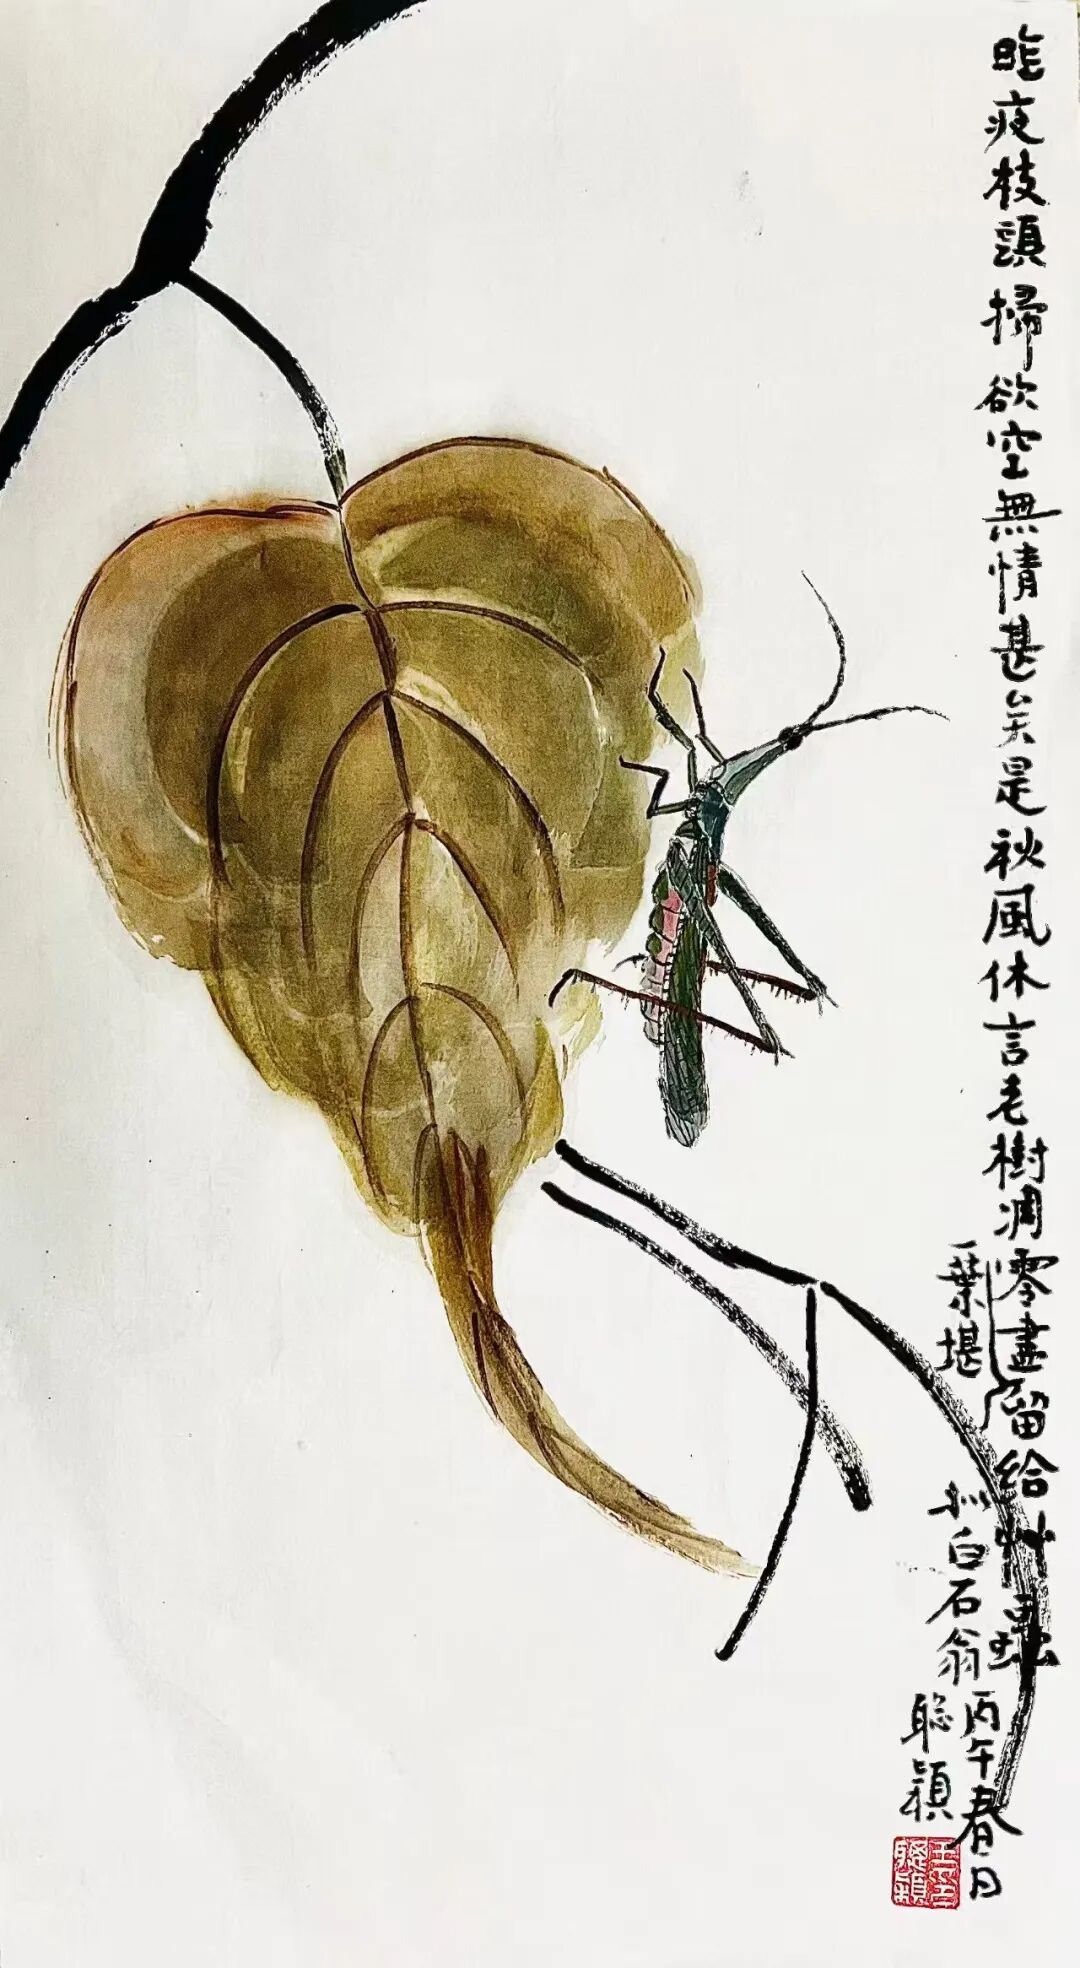 昨夜枝頭掃欲空無情甚矣是秋風休言老樹凋零盡留給艸蟲
一葉堪
拟白石翁
丙午春日
聪穎